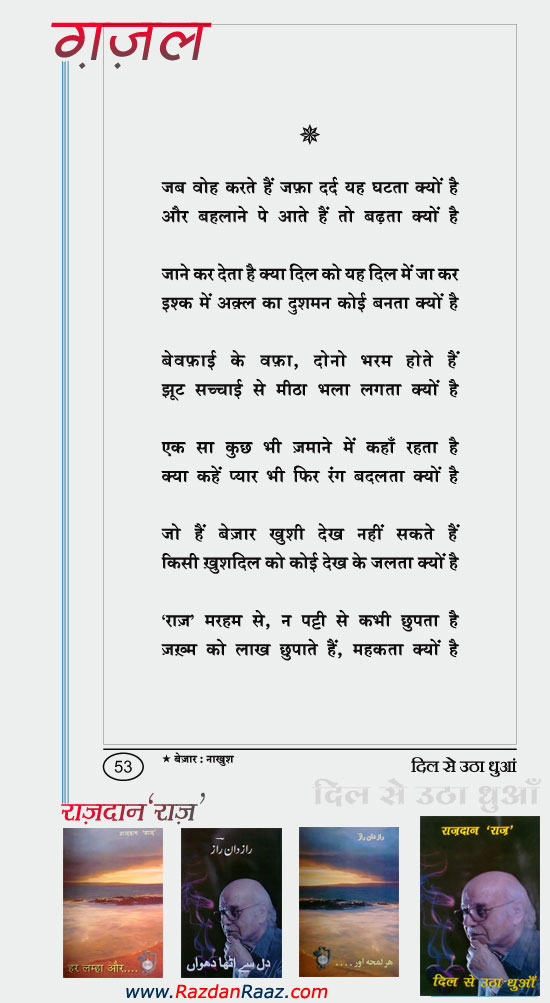 ग़ज़ल
जब वोह करते हैं जफ़ा दर्द यह घटता क्यों है
और बहलाने पे आते हैं तो बढ़ता क्यों है
जाने कर देता है क्या दिल को यह दिल में जा कर
इश्क में अक़्ल का दुशमन कोई बनता क्यों है
बेवफ़ाई के वफ़ा, दोनो भरम होते हैं
झूट सच्चाई से मीठा भला लगता क्यों है
एक सा कुछ भी ज़माने में कहाँ रहता है
क्या कहें प्यार भी फिर रंग बदलता क्यों है
जो हैं बेज़ार खुशी देख नहीं सकते हैं
किसी ख़ुशदिल को कोई देख के जलता क्यों है
‘राज़’ मरहम से, न पट्टी से कभी छुपता है
ज़ख़्म को लाख छुपाते हैं, महकता क्यों है
53
★ बेज़ार : नाखुश
दिल से उठा धुआं
दिल से उठा धुआँ
राज़दान ‘राज़’
राज़दान ‘राज़’
हर लम्हा और....
رازدان راز
دل سے اٹھا دھواں
رازدان راز
ہر لمحہ اور....
राज़दान ‘राज़’
दिल से उठा धुआँ
www.RazdanRaaz.com